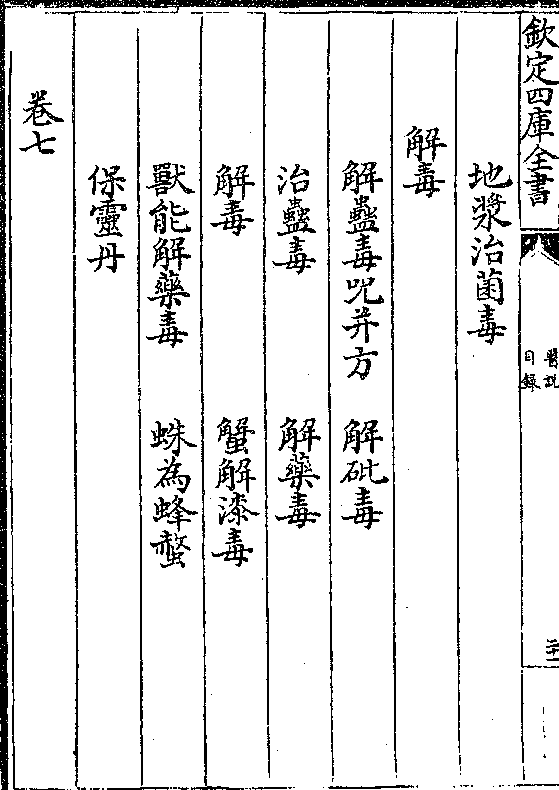 欽定四庫全書
醫說
目錄
地漿治菌毒
解毒
解蠱毒呪并方　解砒毒
治蠱毒　解藥毒
解毒　蟹解漆毒
獸能解藥毒　蛛為蜂螫
保靈丹
卷七